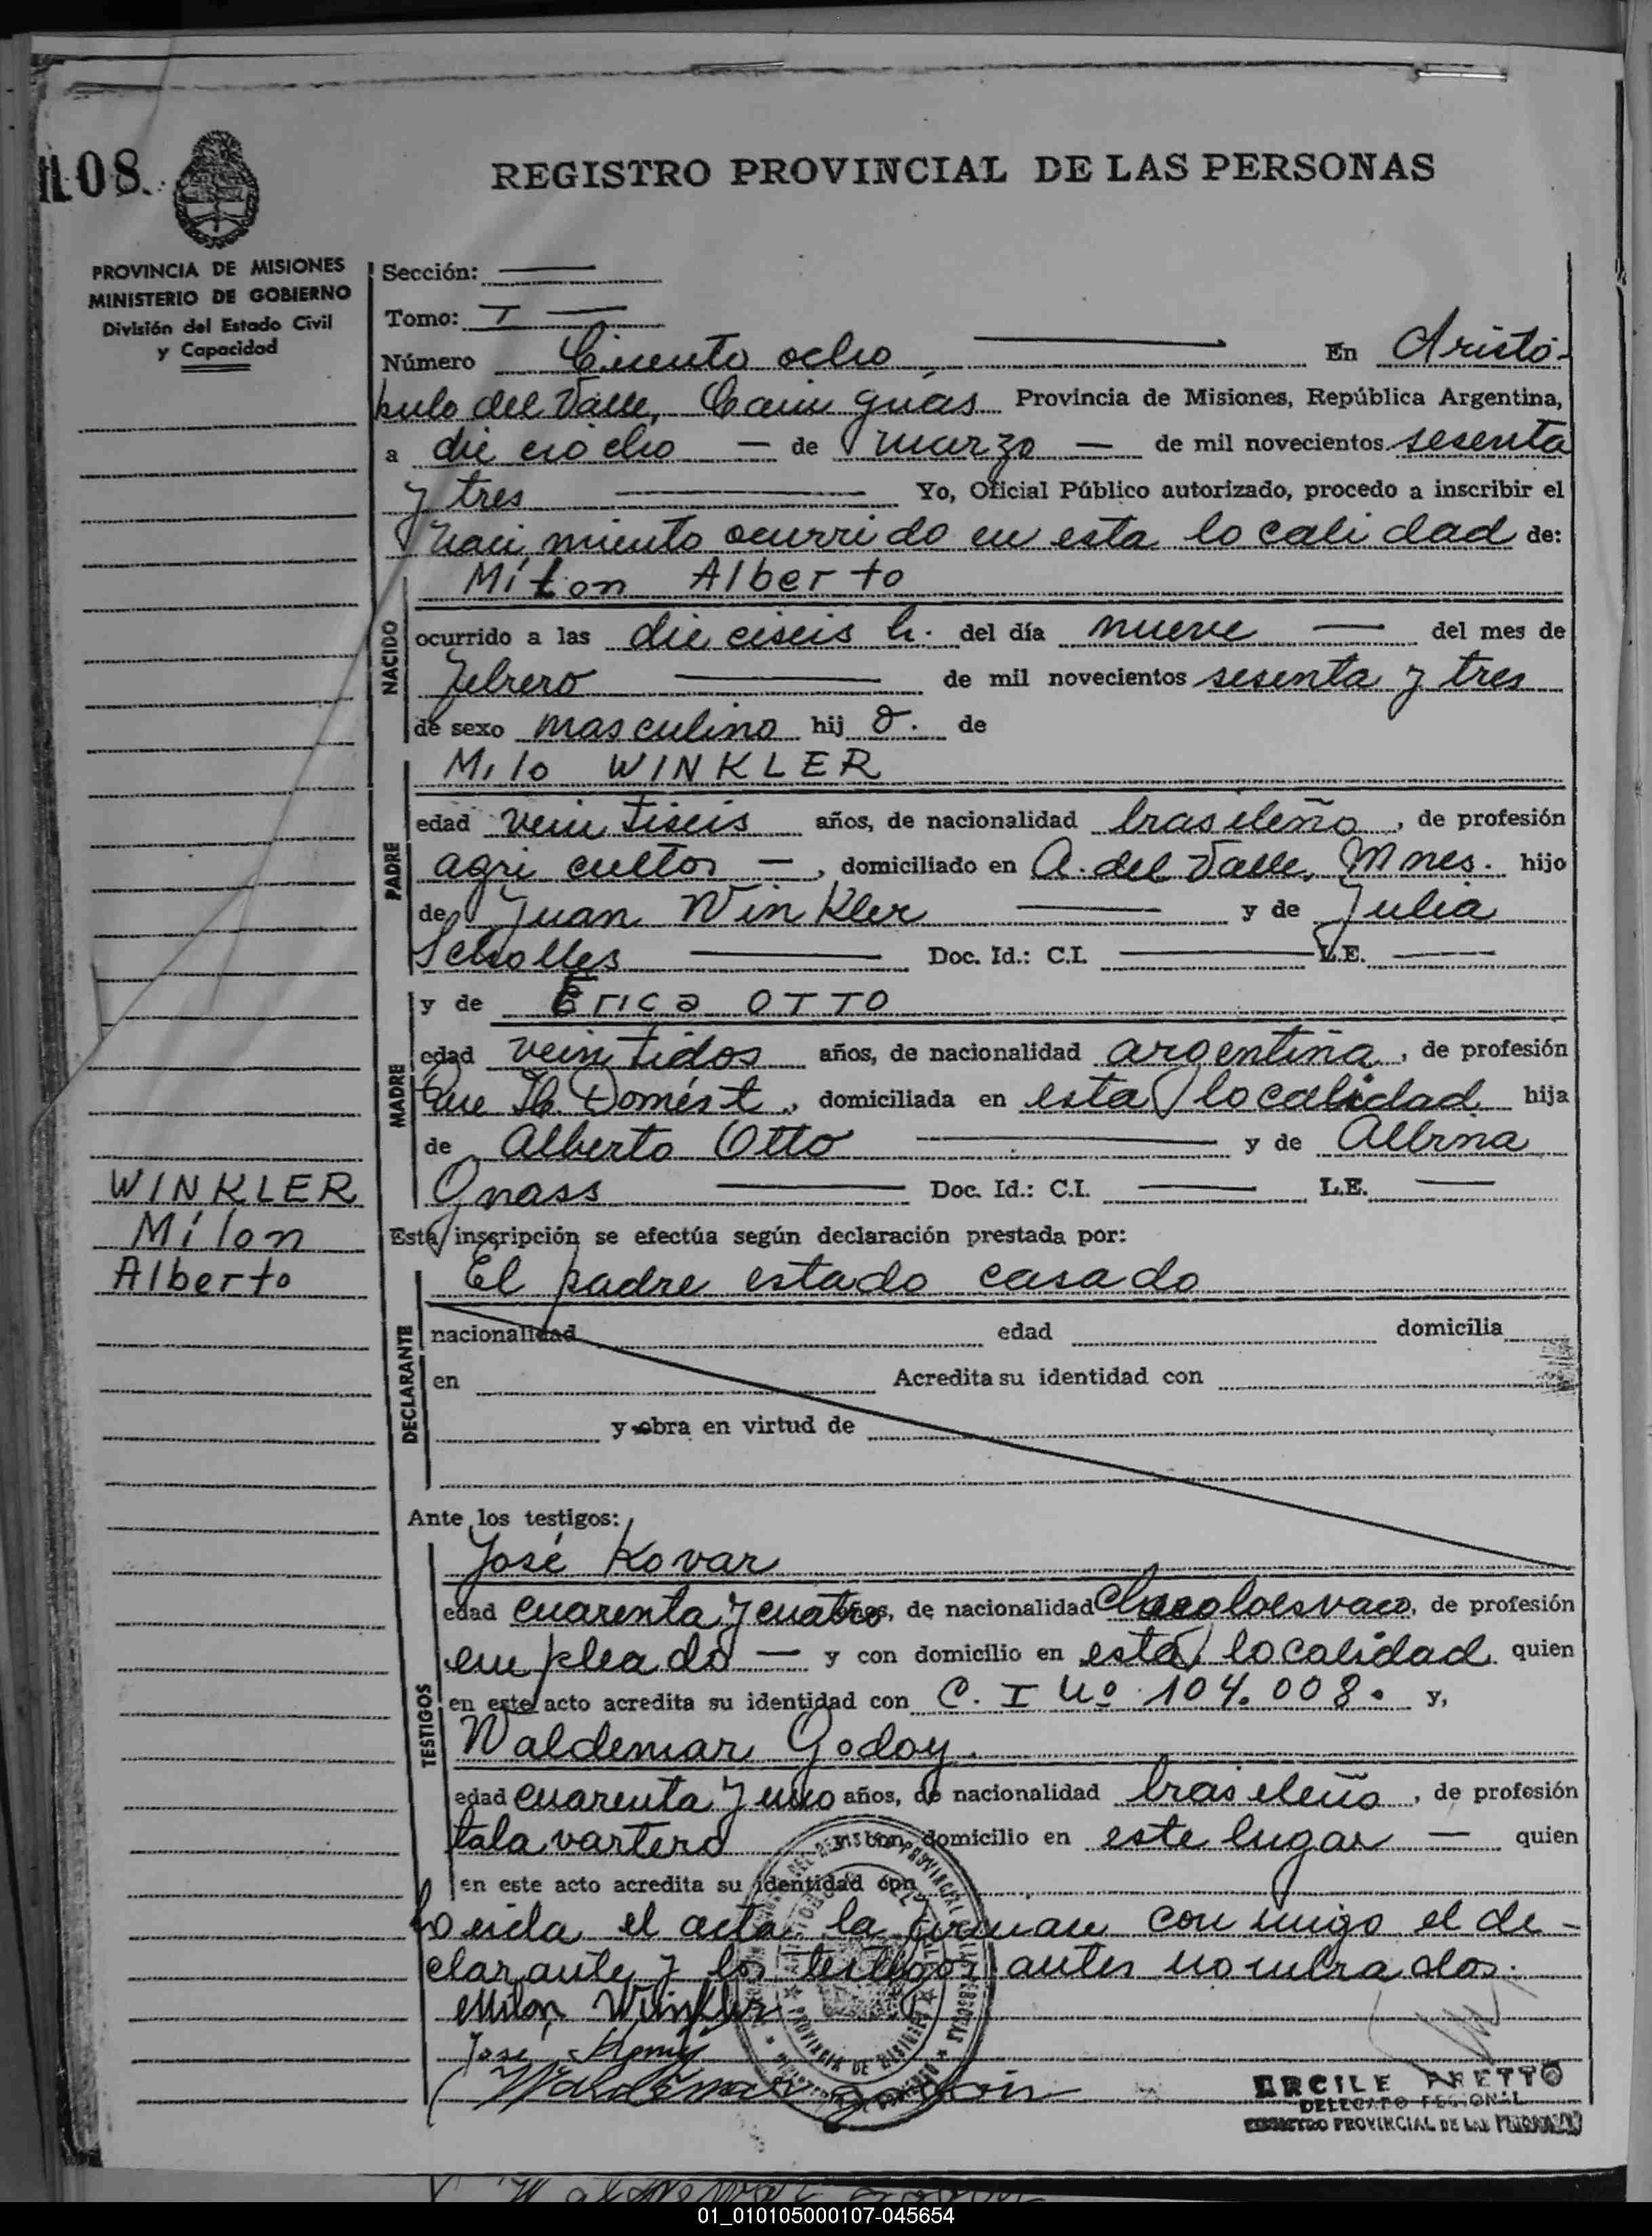 108.
REGISTRO PROVINCIAL DE LAS PERSONAS
PROVINCIA DE MISIONES
MINISTERIO DE GOBIERNO
División del Estado Civil
y Capacidad
Sección:
Tomo: I
Número Ciento ocho En Aristó-
bulo del Valle, Cainguás Provincia de Misiones, República Argentina,
a dieciocho de marzo de mil novecientos sesenta
y tres Yo, Oficial Público autorizado, procedo a inscribir el
Nacimiento ocurrido en esta localidad de:
NACIDO
Mílon Alberto
ocurrido a las dieciseis h. del día nueve del mes de
Febrero de mil novecientos sesenta y tres
de sexo masculino hij o. de
PADRE
Milo WINKLER
edad veintiseis años, de nacionalidad brasileño, de profesión
agricultor, domiciliado en A. del Valle, Mnes. hijo
de Juan Winkler y de Julia
Scholles Doc. Id.: C.I. L.E.
MADRE
y de Erica OTTO
edad veintidos años, de nacionalidad argentina, de profesión
Domést., domiciliada en esta localidad hija
de Alberto Otto y de Albina
Gnass Doc. Id.: C.I. L.E.
WINKLER
Mílon
Alberto
Esta inscripción se efectúa según declaración prestada por:
DECLARANTE
El padre estado casado
nacionalidad edad domicilia
en Acredita su identidad con
y obra en virtud de
Ante los testigos:
TESTIGOS
José Kovar
edad cuarenta y cuatro años, de nacionalidad, de profesión
empleado y con domicilio en esta localidad quien
en este acto acredita su identidad con C. I Nº 104.008. y,
Waldemar Godoy
edad cuarenta y uno años, de nacionalidad brasileño, de profesión
talavartero y con domicilio en este lugar quien
en este acto acredita su identidad con
Leida el acta la firman conmigo el de-
clarante y los testigos antes nombrados.
Milon Winkler
José
Waldemar
PROVINCIA DE MISIONES
ERCILE PRETTO
DELEGADO REGIONAL
REGISTRO PROVINCIAL DE LAS PERSONAS
01_010105000107-045654